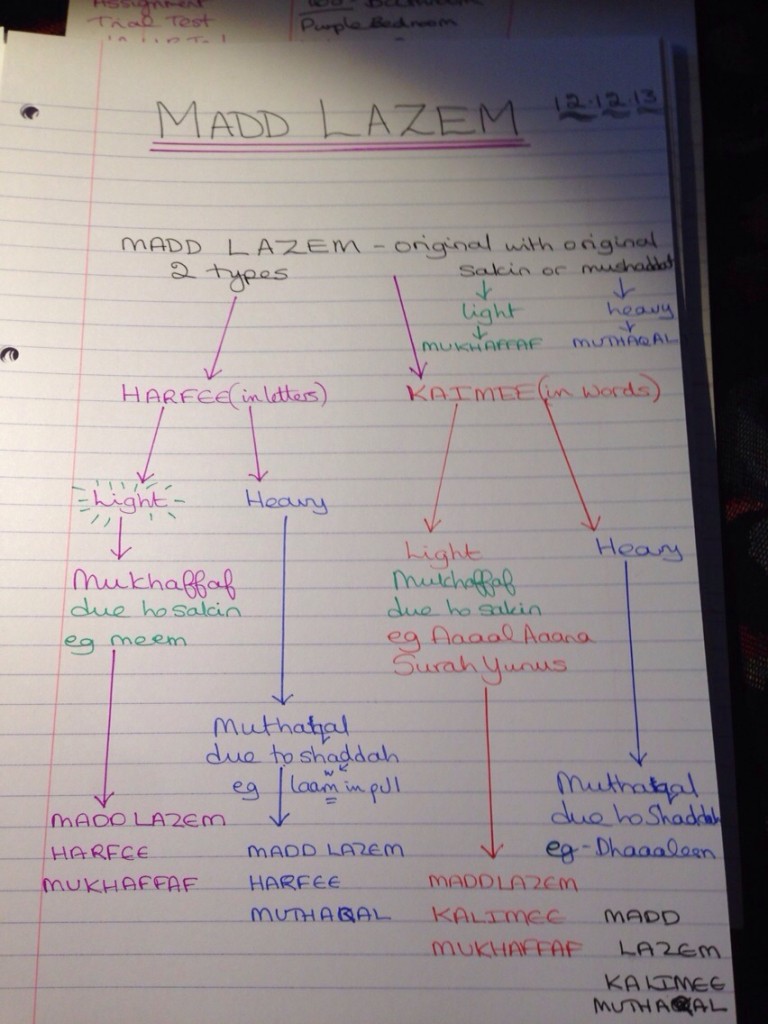 Assignment
Trial Test
Purple Bedroom
12.12.13
MADD LAZEM
MADD LAZEM - original with original
2 types
sakin or mushaddat
light
heavy
MUKHAFFAF
MUTHAQAL
HARFEE (in letters)
KAIMEE (in words)
Light
Heavy
Mukhaffaf
due to sakin
eg meem
Muthaqal
due to shaddah
eg laam in
MADD LAZEM
HARFEE
MUKHAFFAF
MADD LAZEM
HARFEE
MUTHAQAL
Light
Mukhaffaf
due to sakin
eg Aaaal Aaana
Surah Yunus
MADD LAZEM
KALIMEE
MUKHAFFAF
Heavy
Muthaqal
due to Shaddah
eg - Dhaaaleen
MADD
LAZEM
KALIMEE
MUTHAQAL